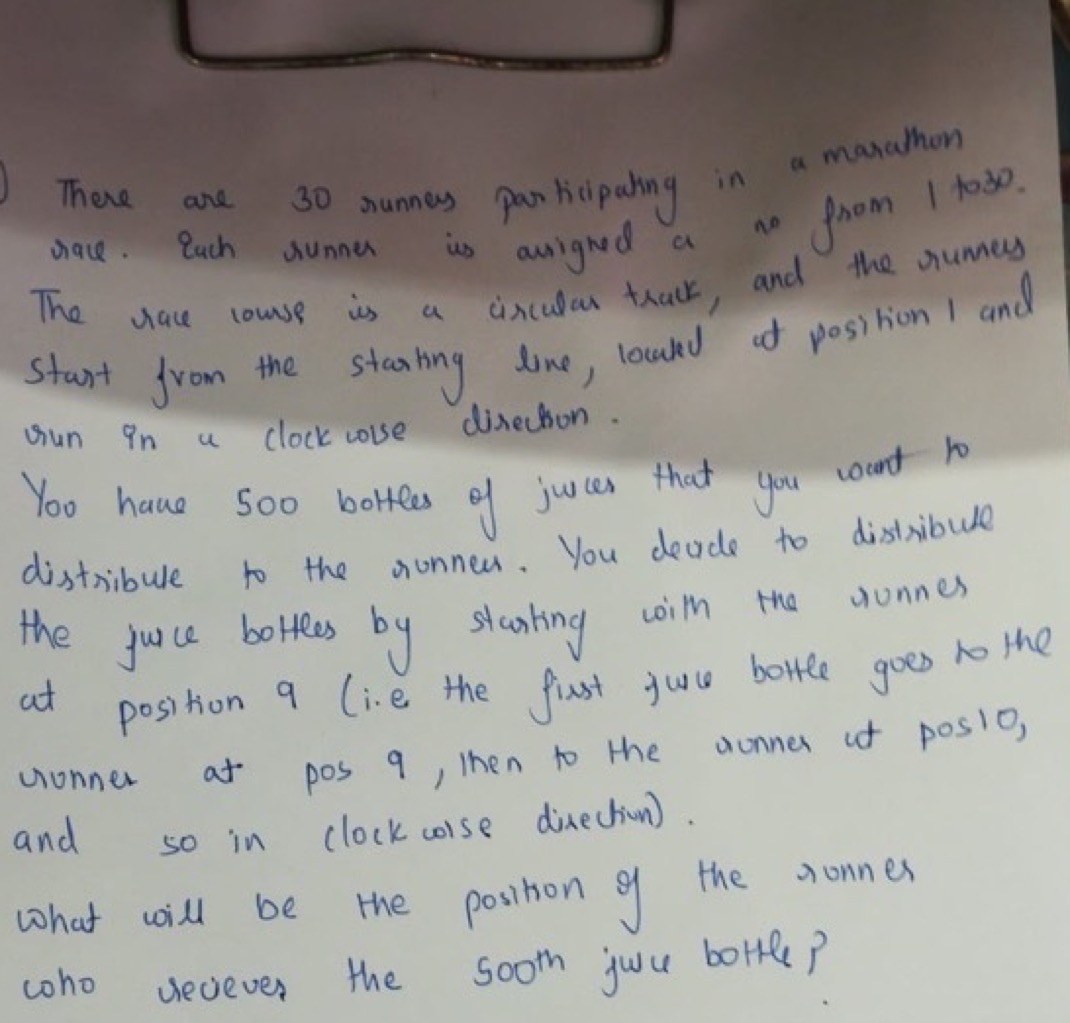 ) There are 30 runners participating in a marathon
race. Each runner is assigned a no from 1 to 30.
The race course is a circular track, and the runners
start from the starting line, located at position 1 and
run in a clock wise direction.
You have 500 bottles of juices that you want to
distribute to the runners. You decide to distribute
the juice bottles by starting with the runner
at position 9 (i.e the first juice bottle goes to the
runner at pos 9, then to the runner at pos 10,
and so in clock wise direction).
What will be the position of the runner
who recieves the 500th juice bottle?